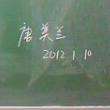 唐美兰
2012.1.10